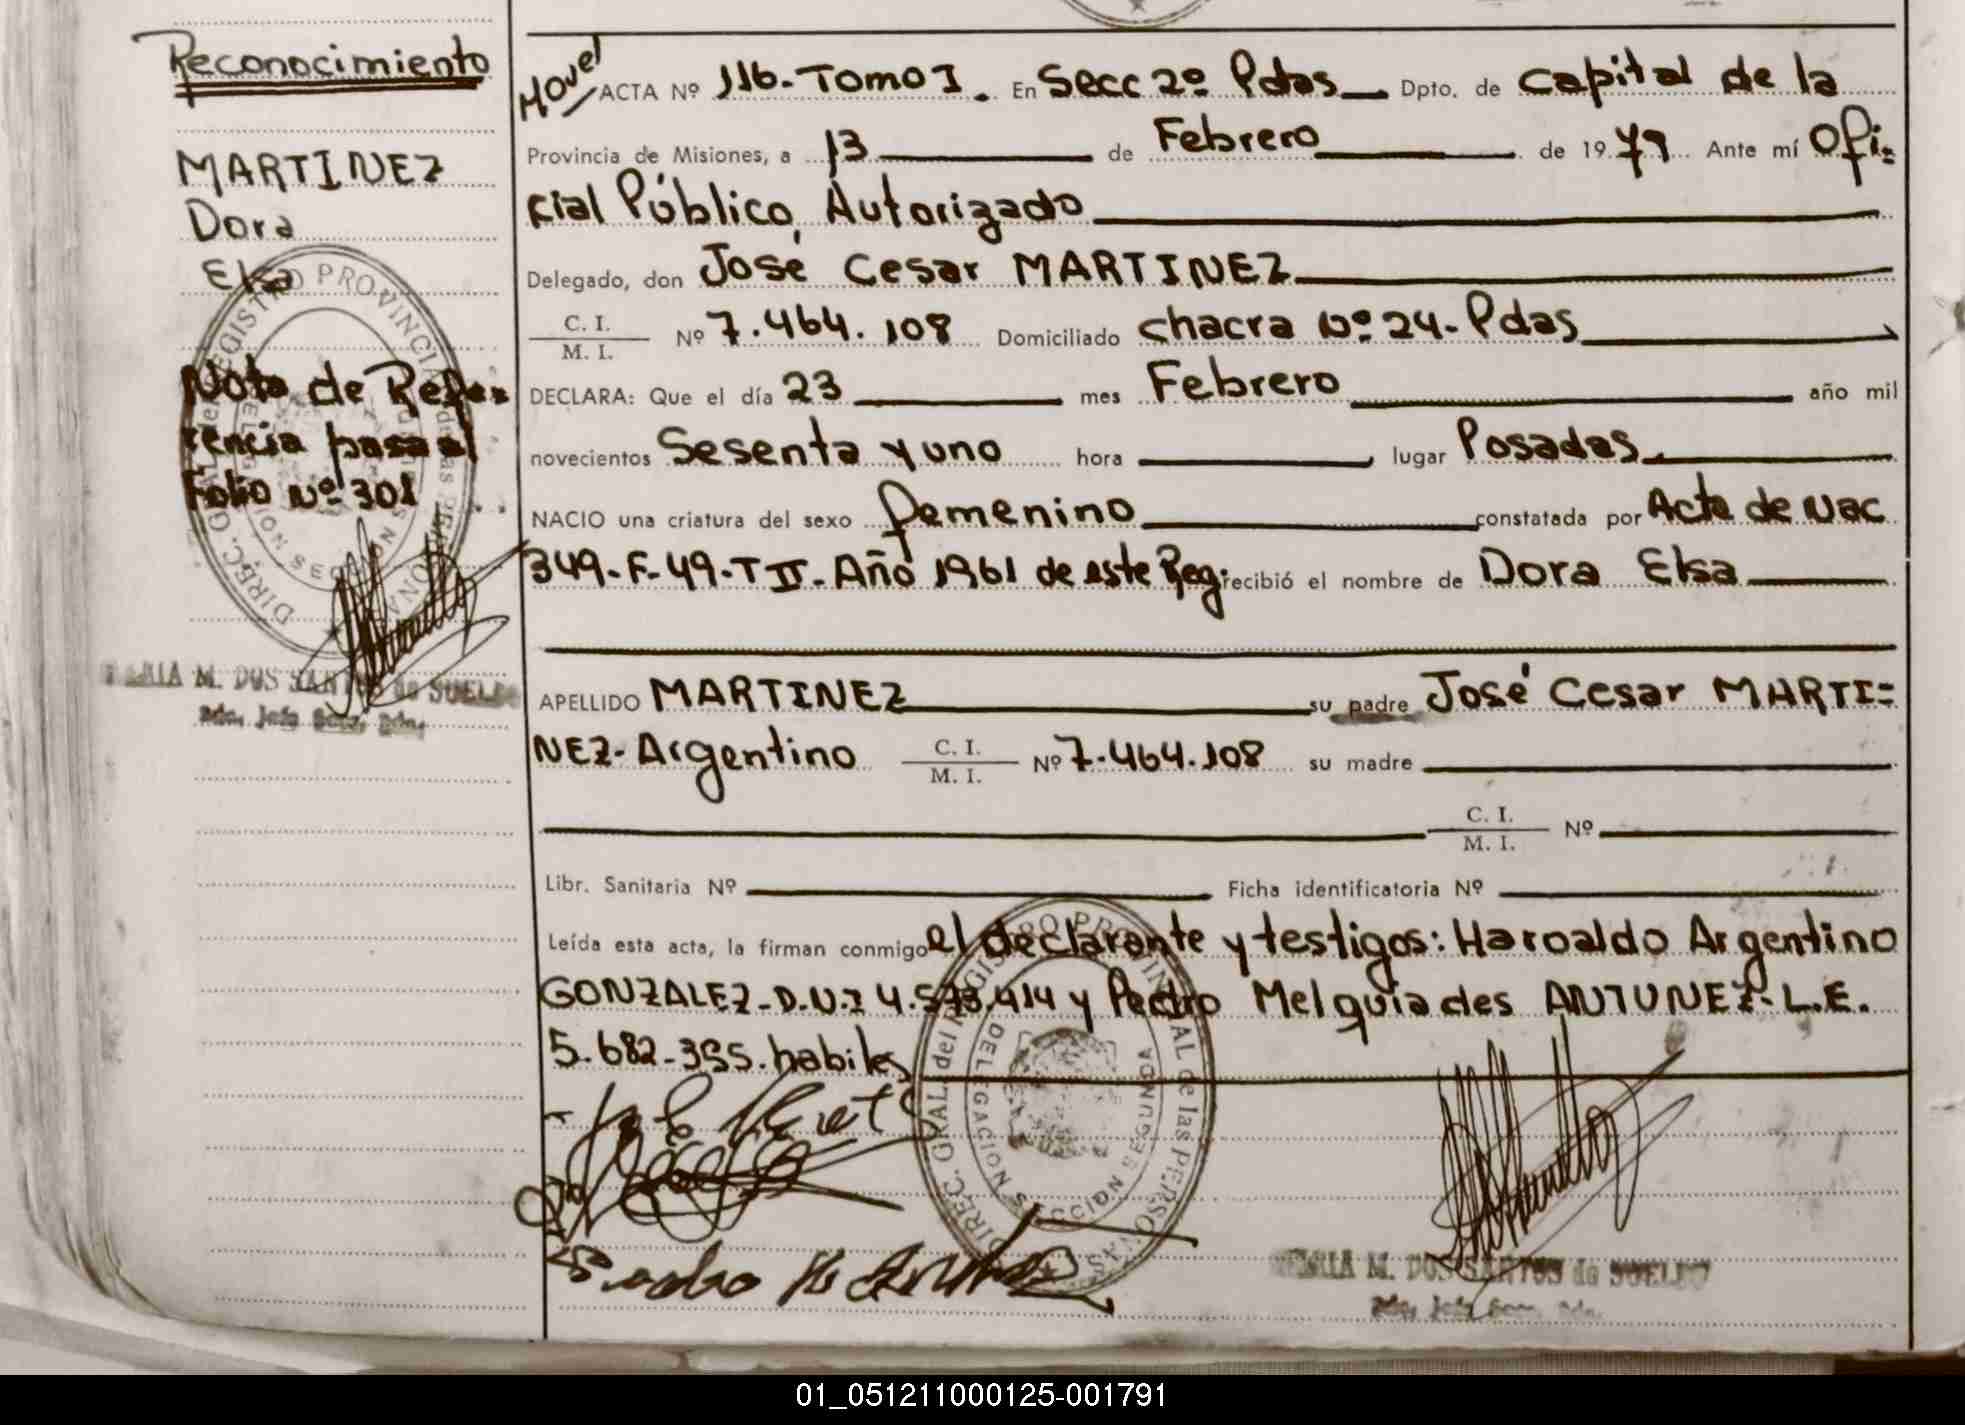 Reconocimiento
MARTINEZ
Dora
Elsa
Nota de Refe=
rencia pasa al
Folio Nº 301
DIREC. GRAL. del REGISTRO PROVINCIAL de las PERSONAS
M. DOS SANTOS de SUELDO
ACTA Nº 116-Tomo I. En Secc 2º Pdas Dpto. de Capital de la
Provincia de Misiones, a 13 de Febrero de 1979 Ante mí Ofi=
cial Público, Autorizado
Delegado, don José Cesar MARTINEZ
C. I.
M. I. Nº 7.464.108 Domiciliado chacra Nº 24-Pdas
DECLARA: Que el día 23 mes Febrero año mil
novecientos Sesenta y uno hora lugar Posadas
NACIO una criatura del sexo femenino constatada por Acta de Nac
349-F-49-T II-Año 1961 de este Reg. recibió el nombre de Dora Elsa
APELLIDO MARTINEZ su padre José Cesar MARTI=
NEZ-Argentino C. I.
M. I. Nº 7.464.108 su madre
C. I.
M. I. Nº
Libr. Sanitaria Nº Ficha identificatoria Nº
Leída esta acta, la firman conmigo el declarante y testigos: Haroaldo Argentino
GONZALEZ-D.N.I 4.573.414 y Pedro Melquiades ANTUNEZ-L.E.
5.682-355.habiles
DIREC. GRAL. del REGISTRO PROVINCIAL de las PERSONAS
DELEGACION SECCION SEGUNDA
M. DOS SANTOS de SUELDO
01_051211000125-001791